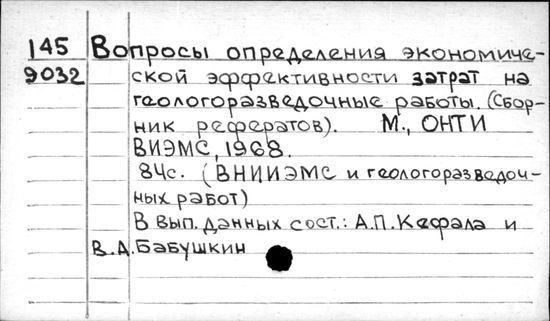 145 Вопросы определения экономиче-
9032 ской эффективности затрат на
геологоразведочные работы. (Сбор-
ник рефератов). М., ОНТИ
ВИЭМС, 1968.
84с. (ВНИИЭМС и геологоразведоч-
ных работ)
В вып. данных сост.: А.П.Кефала и
В.А.Бабушкин